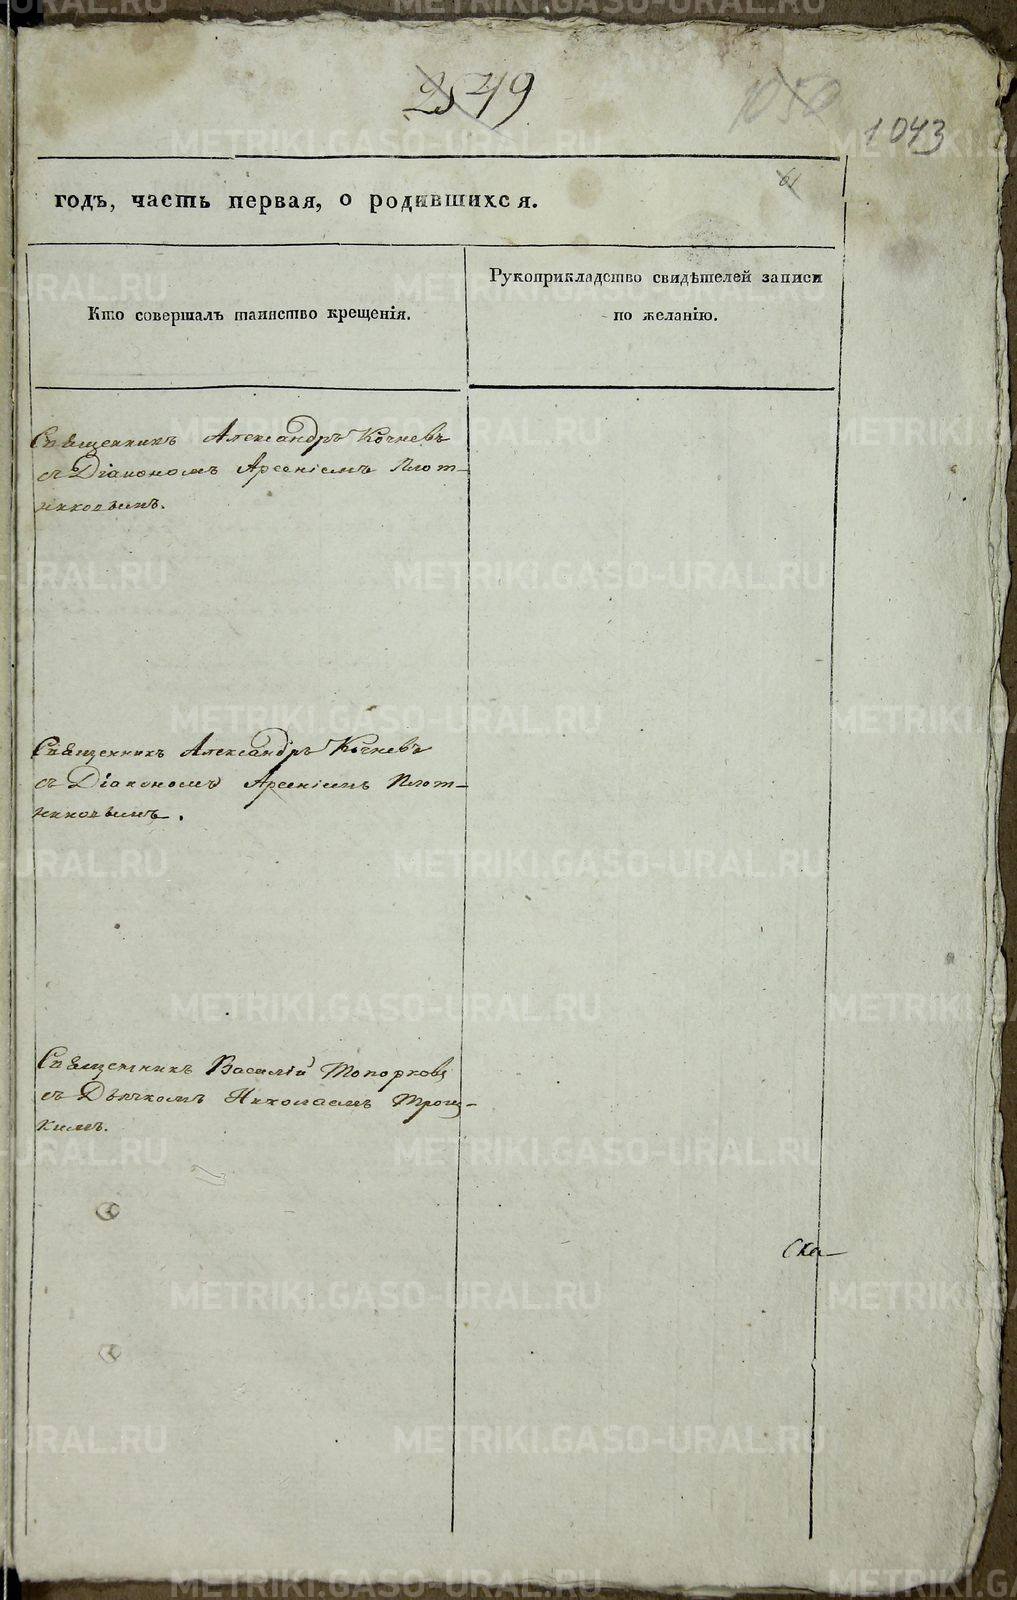 2549
1050
1043
61
годъ, часть первая, о родившихся.
Кто совершалъ таинство крещенія.
Рукоприкладство свидѣтелей записи
по желанію.
Священникъ Александръ Кочневъ
съ Діакономъ Арсеніемъ Плот-
никовымъ.
Священникъ Александръ Кочневъ
съ Діакономъ Арсеніемъ Плот-
никовымъ.
Священникъ Василій Топорковъ
съ Дьячкомъ Николаемъ Троиц-
кимъ.
METRIKI.GASO-URAL.RU